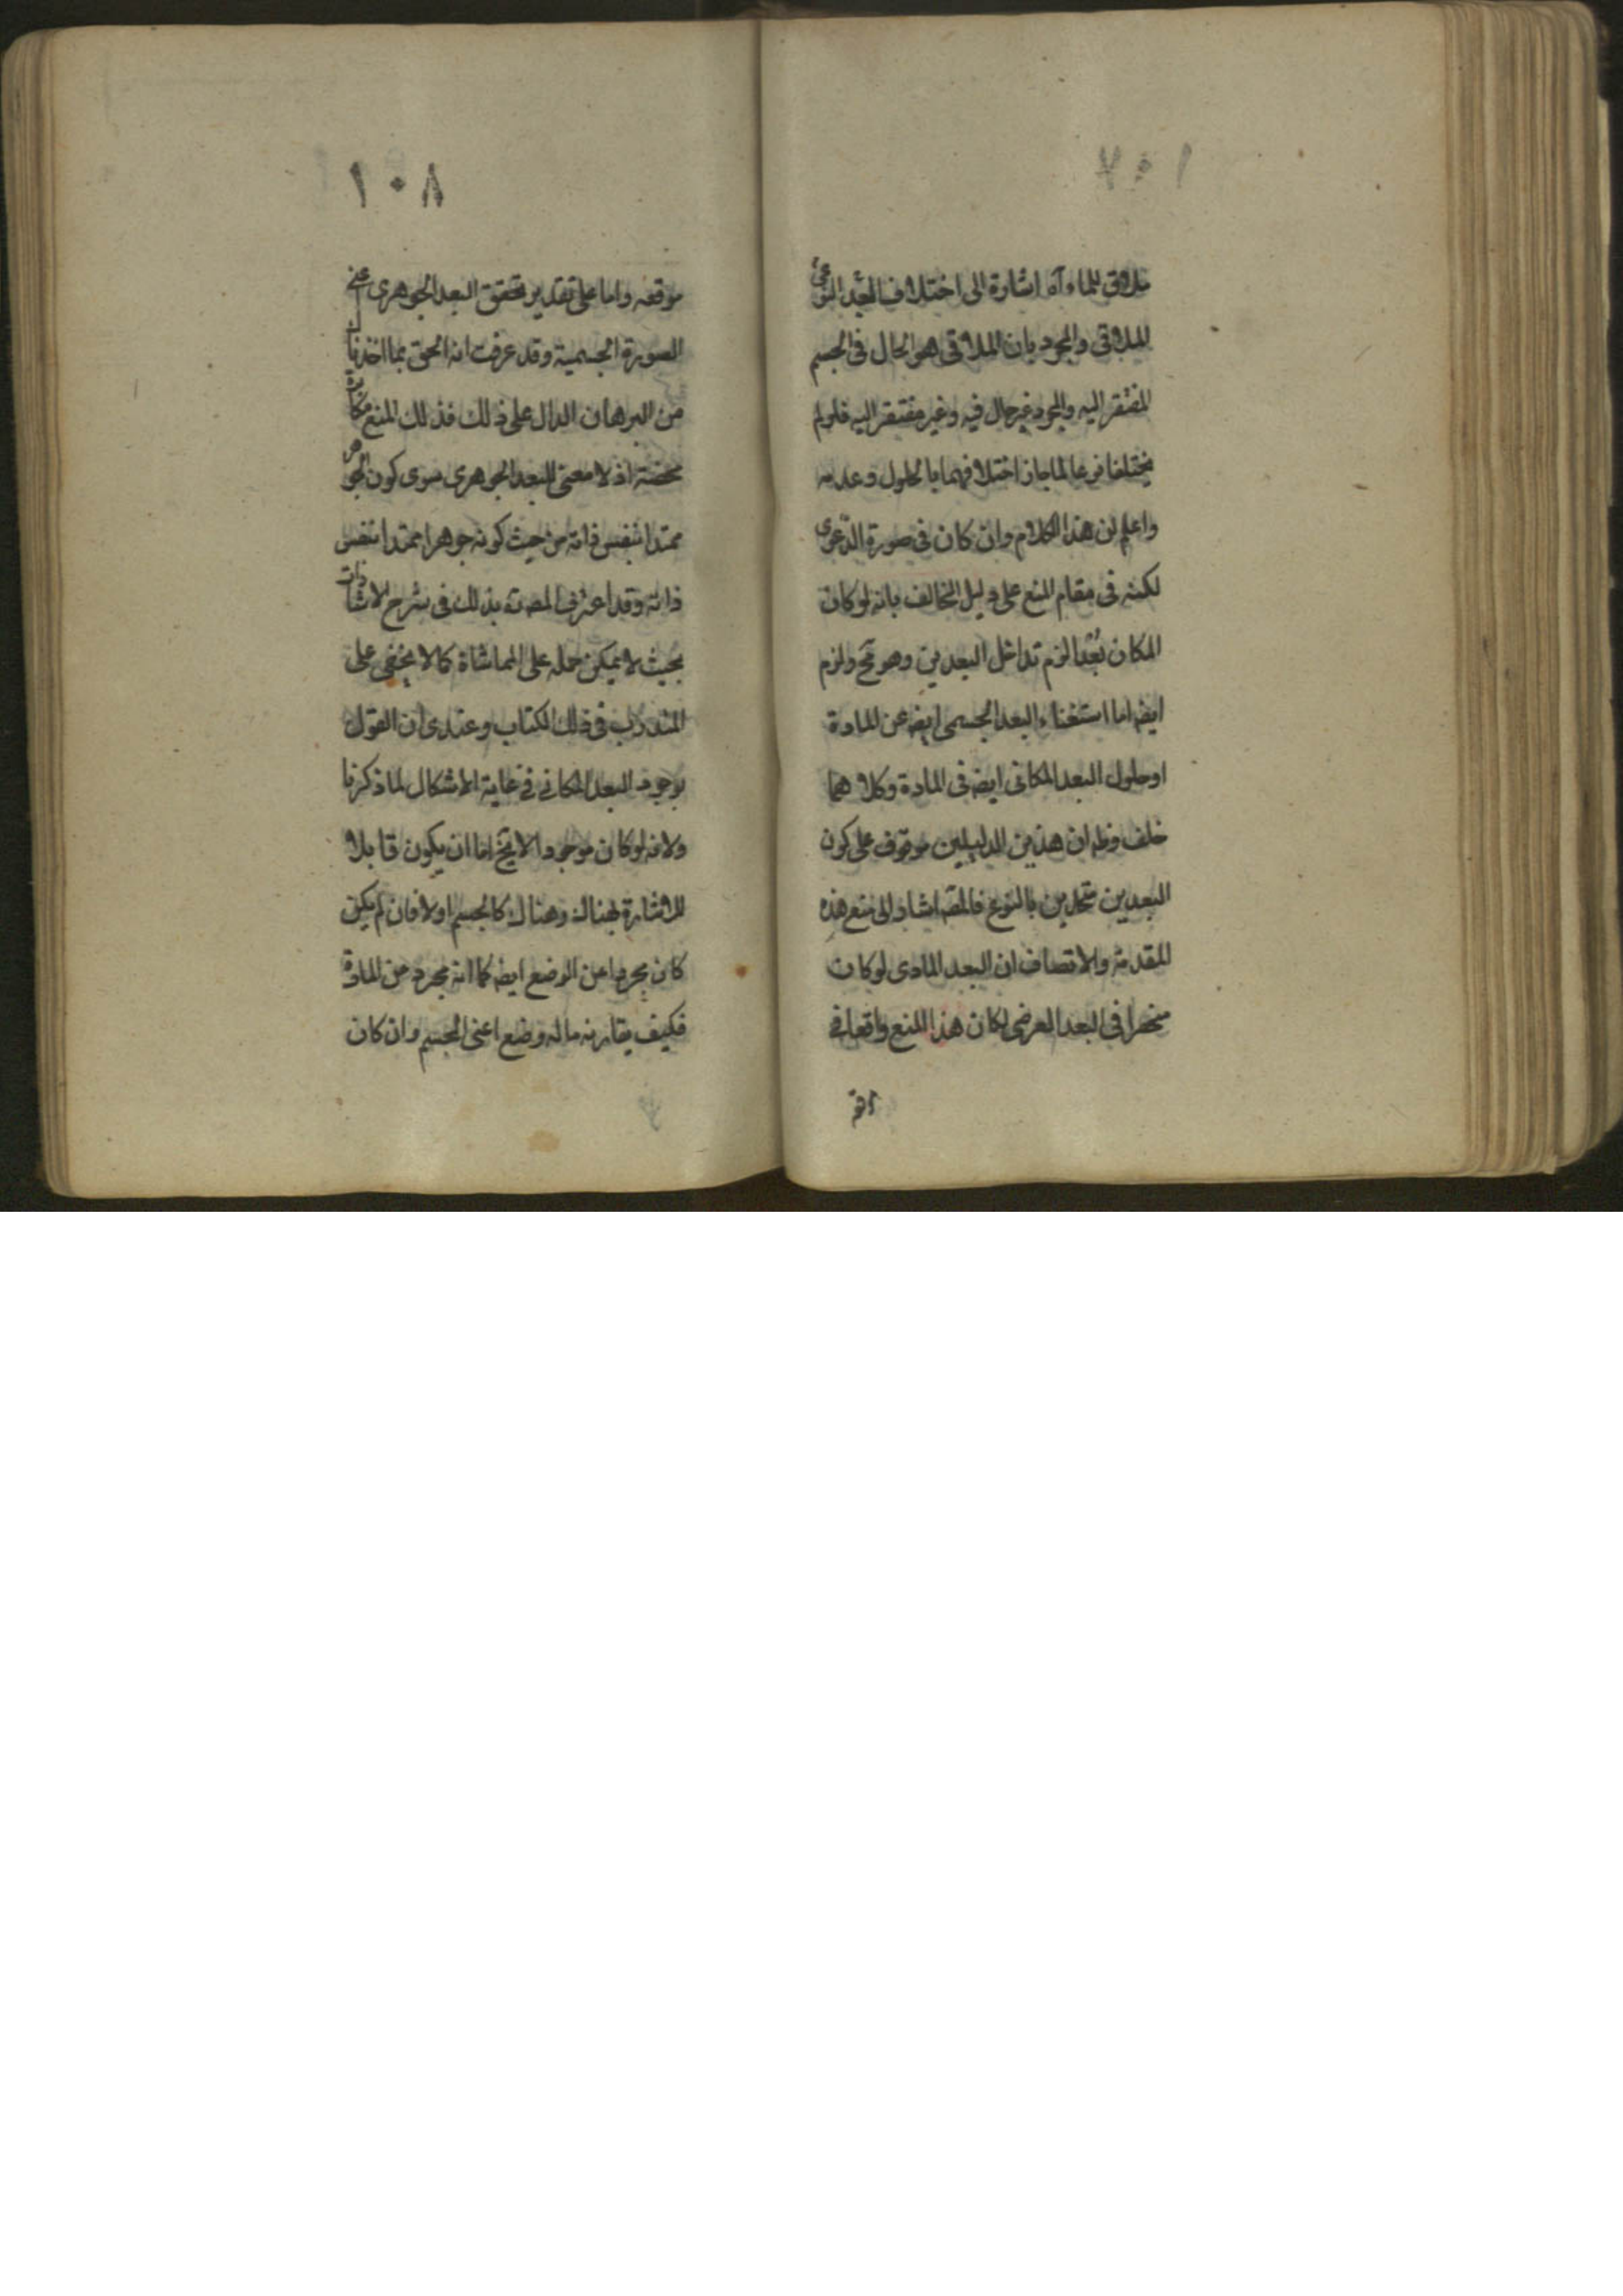 ١٠٧
ملاقى للماء آه اشارة الى اختلاف البعد النوعى
الملاقى والمجرد بان الملاقى هو الحال فى الجسم
المفتقر اليه والمجرد غير حال فيه وغير مفتقر اليه فلو لم
يختلفا نوعا لما جاز اختلافهما بالحلول وعدمه
واعلم ان هذا الكلام وان كان فى صورة الدّعوى
لكنه فى مقام المنع على دليل المخالف بانه لو كان
المكان بُعْدًا لزم تداخل البعدين وهو مح ولزم
ايضا اما استغناء البعد الجسمى ايضا عن المادة
او حلول البعد المكانى ايضا فى المادة وكلاهما
خلف وظ ان هذين الدليلين موقوف على كون
البعدين متحدين بالنوع فالمصَ اشار الى منع هذه
المقدمة والانصاف ان البعد المادى لو كان
منحصرا فى البعد العرضى لكان هذا المنع واقعا فى
١٠٨
موقعه واما على تقدير تحقق البعد الجوهرى اعنى
الصورة الجسمية وقد عرفت انه الحق بما اخذنا
من البرهان الدال على ذلك فذلك المنع مكابرة
محضة اذ لا معنى للبعد الجوهرى سوى كون الجوهر
ممتدا بنفس ذاته من حيث كونه جوهرا ممتدا بنفس
ذاته وقد اعترف المصَ بذلك فى شرح الاشارات
بحيث لا يمكن حمله على المماشاة كما لا يخفى على
المتدرّب فى ذلك الكتاب وعندى ان القول
بوجود البعد المكانى فى غاية الاشكال لما ذكرنا
ولانه لو كان موجودا لا يخ اما ان يكون قابلا
للاشارة لهناك وهناك كالجسم اولا فان لم يكن
كان مجردا عن الوضع ايضا كما انه مجرد عن المادة
فكيف يقارنه ماله وضع اعنى الجسم وان كان